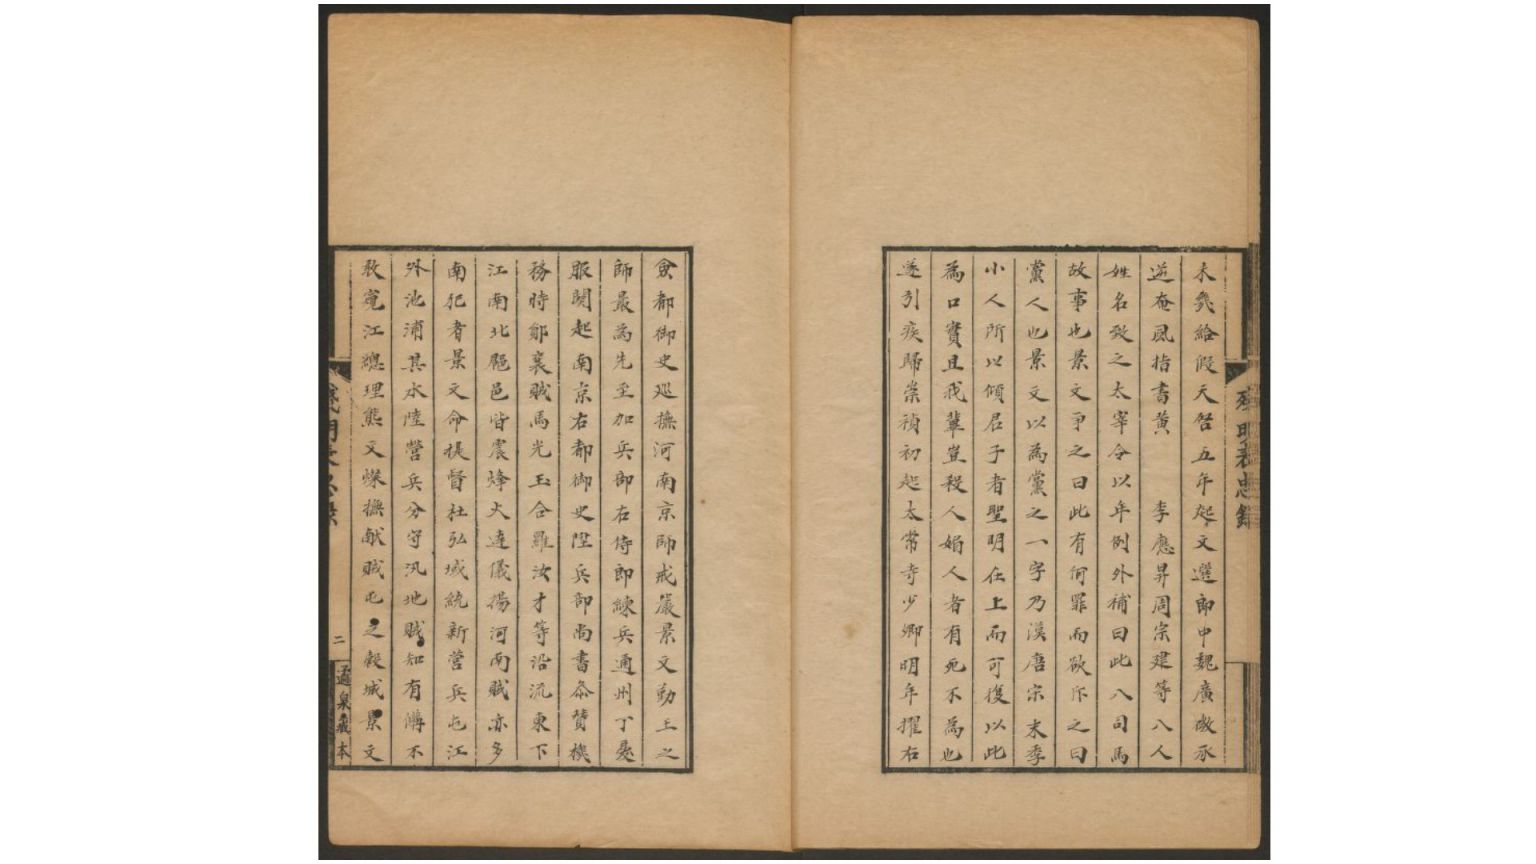 未幾給假天啓五年起文選郎中魏廣微承
逆奄風指書黃 李應昇周宗建等八人
姓名致之太宰令以年例外補曰此八司馬
故事也景文爭之曰此有何罪而欲斥之曰
黨人也景文以為黨之一字乃漢唐宋末季
小人所以傾君子者聖明在上而可復以此
為口實且我輩豈殺人媚人者有死不為也
遂引疾歸崇禎初起太常寺少卿明年擢右
殘明表忠錄
僉都御史廵撫河南京師戒嚴景文勤王之
師最為先至加兵部右侍郎練兵通州丁憂
服闋起南京右都御史陞兵部尚書叅贊機
務時鄖襄賊馬光玉合羅汝才等沿流東下
江南北郡邑皆震烽火達儀揚河南賊亦多
南犯者景文命提督杜弘域統新營兵屯江
外池浦其水陸營兵分守汛地賊知有備不
敢寛江總理熊文燦撫献賊屯之穀城景文
二
適泉藏本